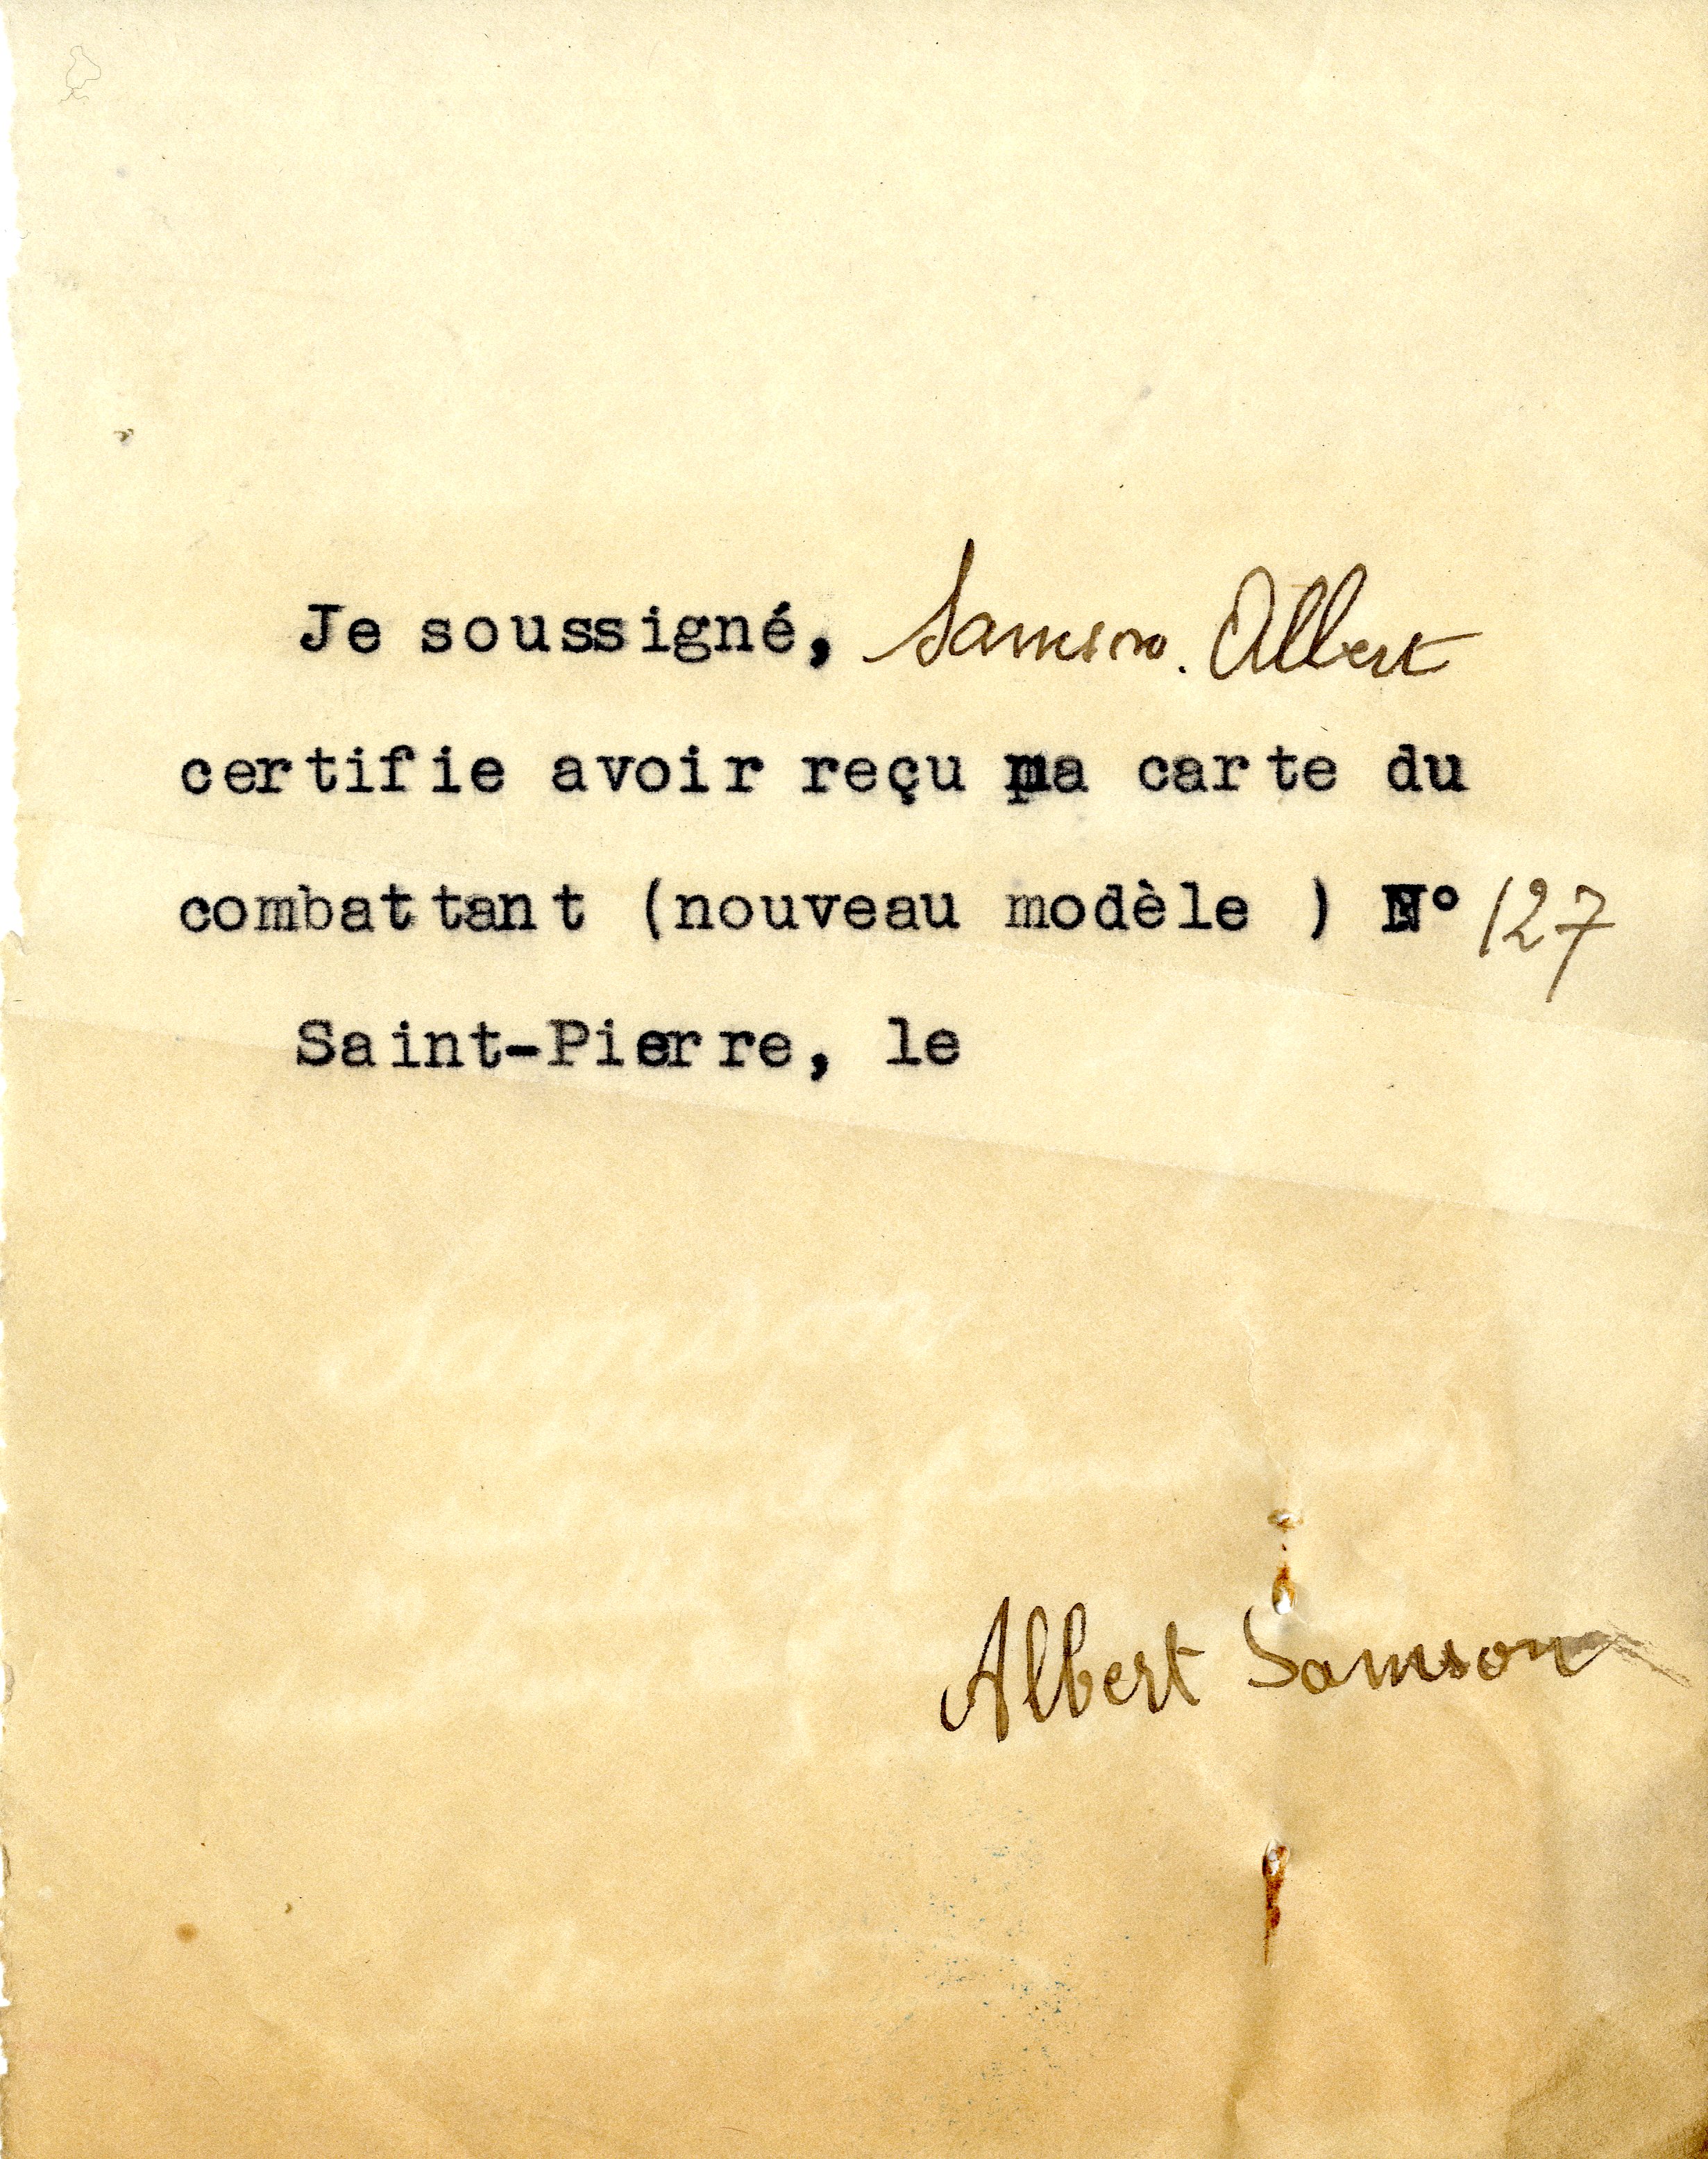 Je soussigné, Samson. Albert
certifie avoir reçu ma carte du
combattant (nouveau modèle ) N° 127
Saint-Pierre, le
Albert Samson